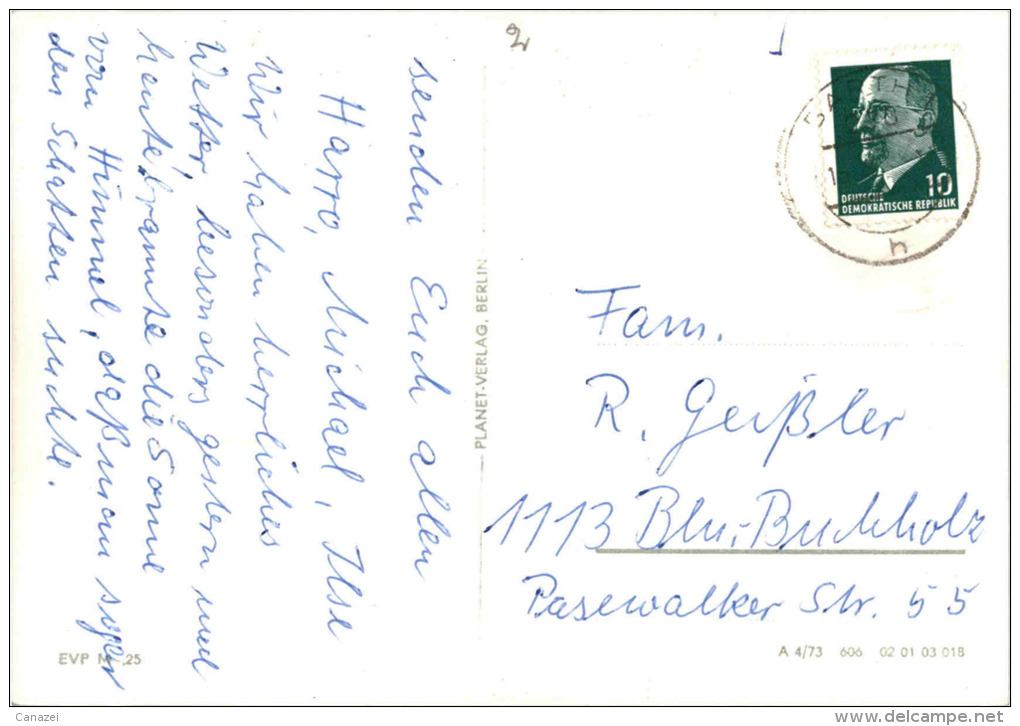 senden Euch allen
Harro, Michael, Ilse
Wir haben herrliches
Wetter, besonders gestern und
heute brannte die Sonne
vom Himmel, daß man sogar
den Schatten suchte.
2
PLANET-VERLAG, BERLIN
10
DEUTSCHE
DEMOKRATISCHE REPUBLIK
h
Fam.
R. Geißler
1113 Bln.-Buchholz
Pasewalker Str. 55
EVP M ,25
A 4/73 606 02 01 03 018
Canazei
www.delcampe.net